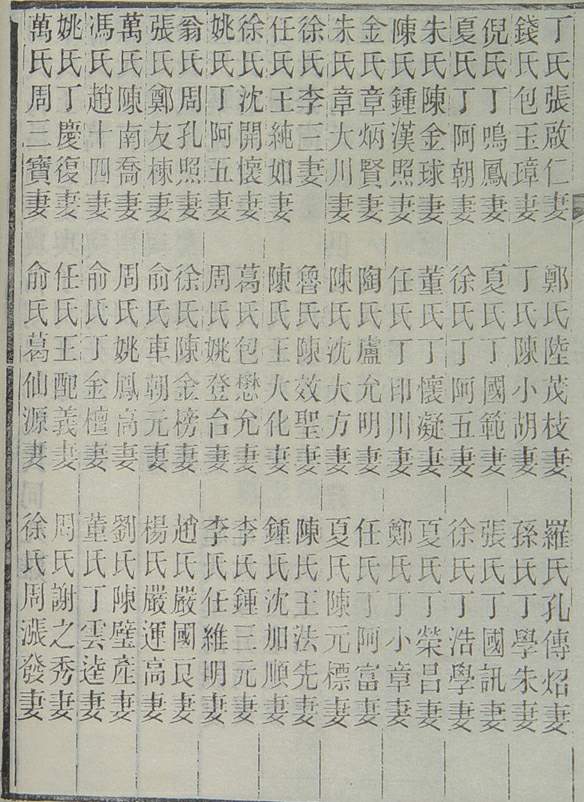 丁氏張啟仁妻 鄭氏陸茂枝妻 羅氏孔傳炤妻
錢氏包玉璋妻 丁氏陳小胡妻 孫氏丁學朱妻
倪氏丁鳴鳳妻 夏氏丁國範妻 張氏丁國訊妻
夏氏丁阿朝妻 徐氏丁阿五妻 徐氏丁浩學妻
朱氏陳金球妻 董氏丁懷凝妻 夏氏丁榮昌妻
陳氏鍾漢照妻 任氏丁印川妻 鄭氏丁小章妻
金氏章炳賢妻 陶氏盧允明妻 任氏丁阿富妻
朱氏章大川妻 陳氏沈大方妻 夏氏陳元標妻
徐氏李三妻 魯氏陳效聖妻 陳氏王法先妻
任氏王純如妻 陳氏王大化妻 鍾氏沈加順妻
徐氏沈開懷妻 葛氏包懋允妻 李氏鍾三元妻
姚氏丁阿五妻 周氏姚登台妻 李氏任維明妻
翁氏周孔照妻 徐氏陳金榜妻 趙氏嚴國良妻
張氏鄭友棟妻 俞氏車朝元妻 楊氏嚴運高妻
萬氏陳南喬妻 周氏姚鳳高妻 劉氏陳璧產妻
馮氏趙十四妻 俞氏丁金檀妻 董氏丁雲逵妻
姚氏丁慶復妻 任氏王配義妻 周氏謝之秀妻
萬氏周三寶妻 俞氏葛仙源妻 徐氏周漲發妻